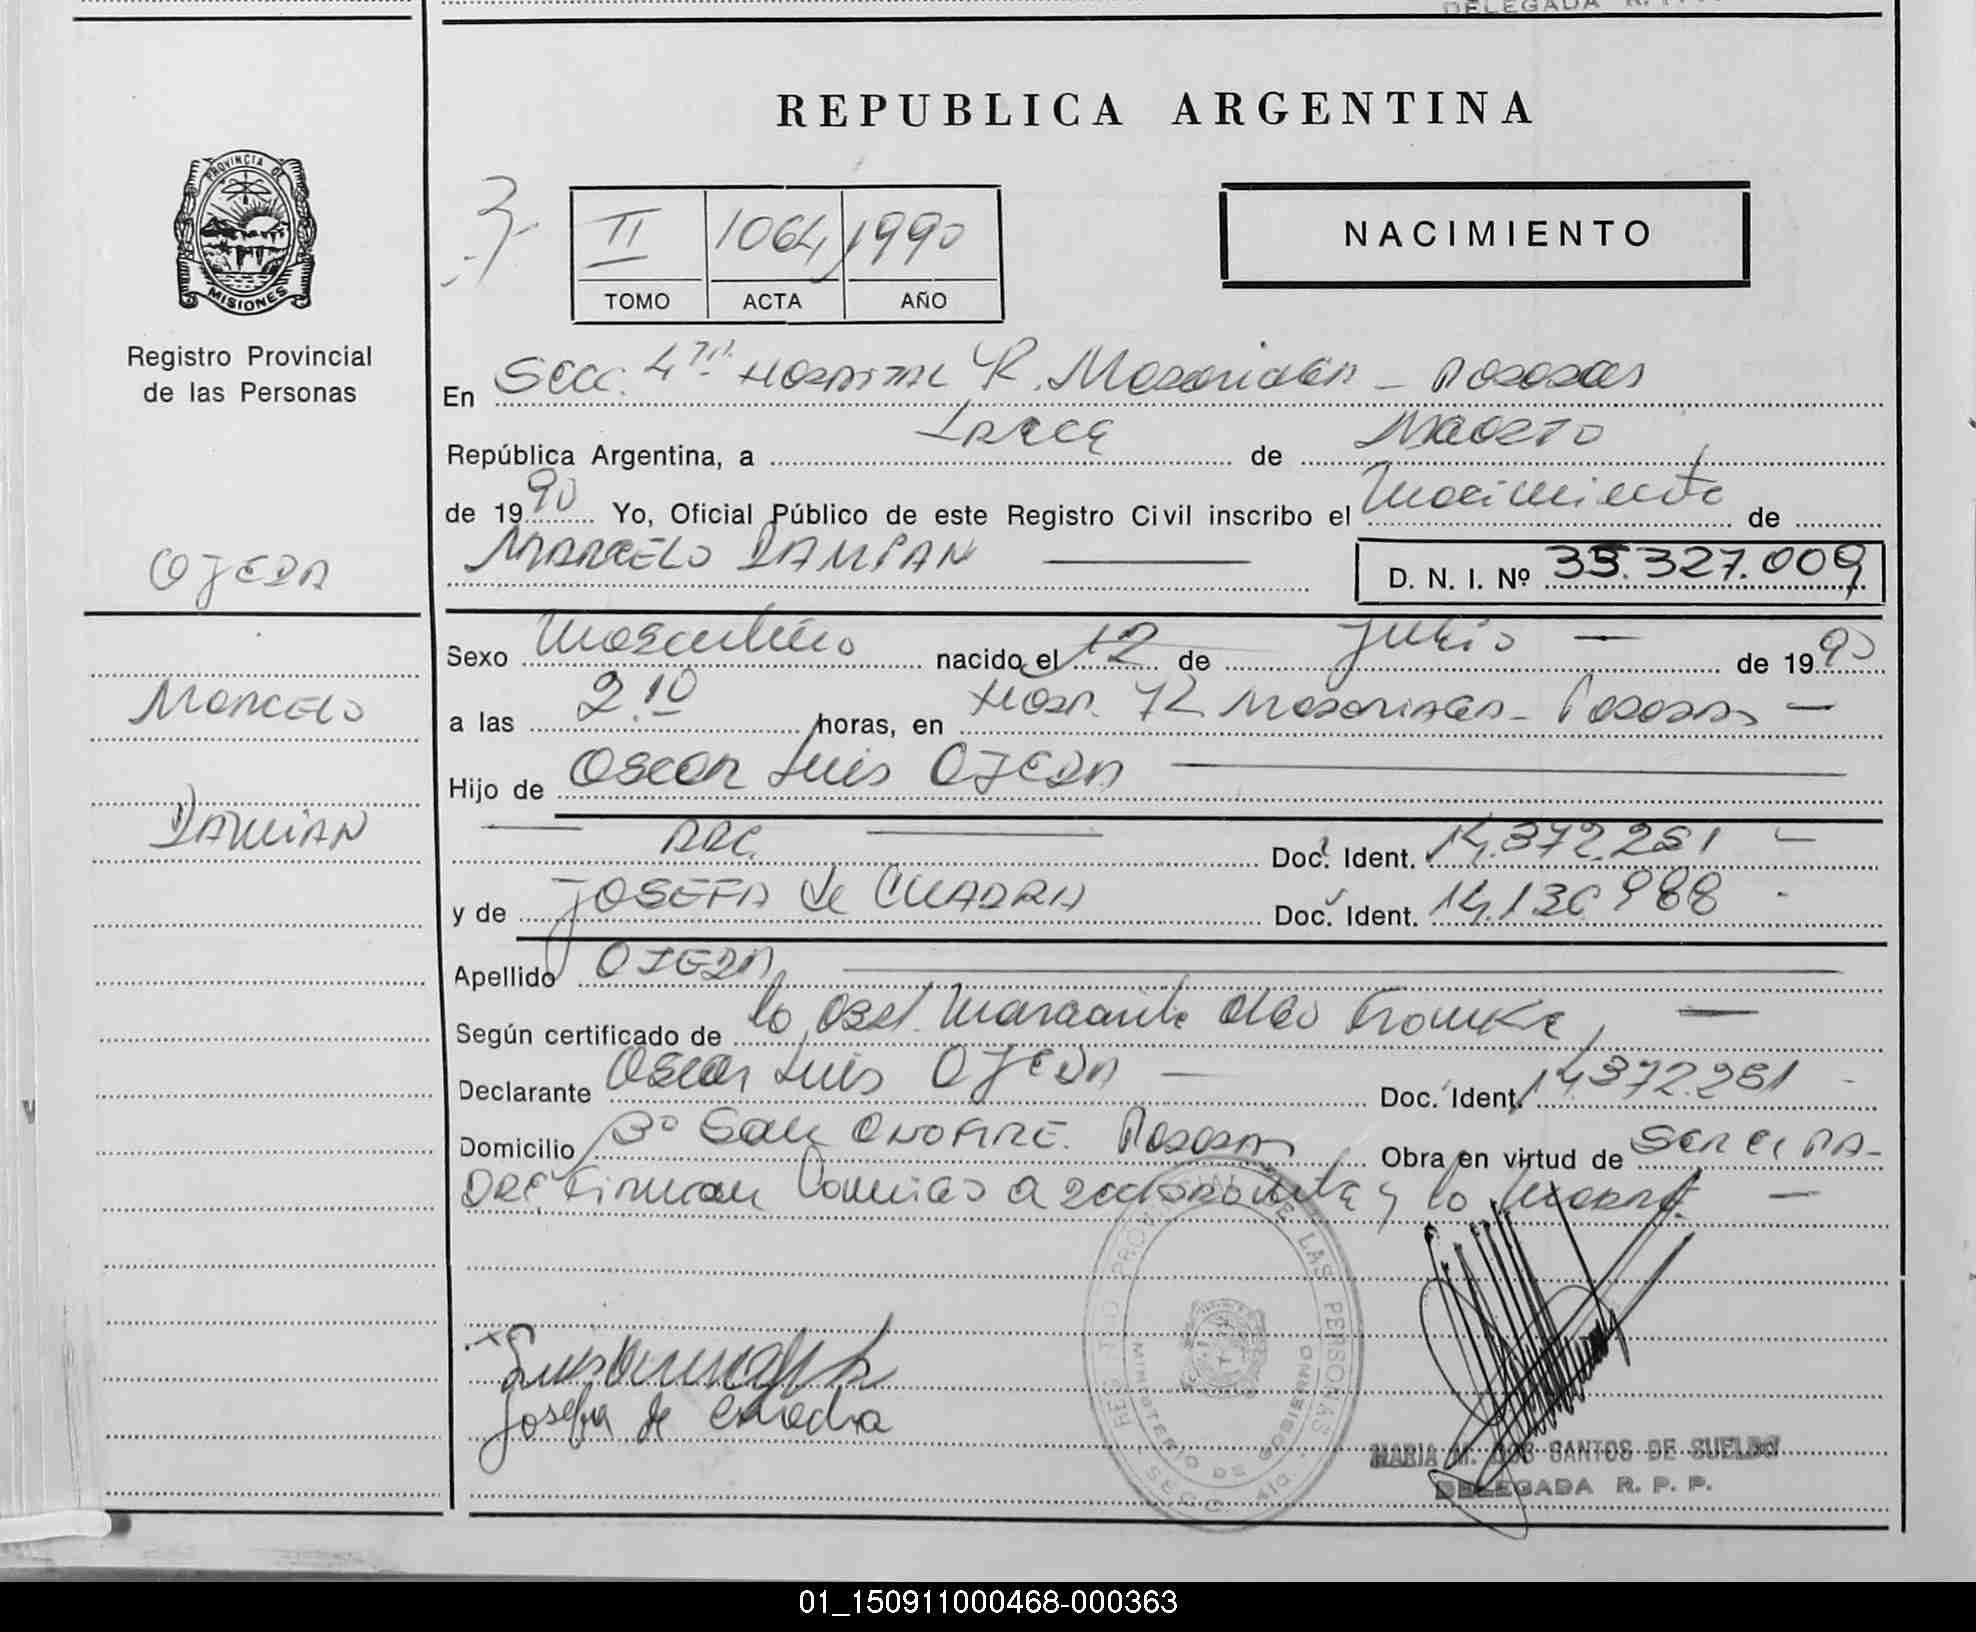 DELEGADA R.
REPUBLICA ARGENTINA
PROVINCIA DE
MISIONES
Registro Provincial
de las Personas
II 1064 1990
TOMO ACTA AÑO
NACIMIENTO
En Secc. 4ta. Hospital R. Madariaga - Posadas
República Argentina, a Trece de Agosto
de 1990 Yo, Oficial Público de este Registro Civil inscribo el Nacimiento de
MARCELO DAMIAN
D. N. I. Nº 35.327.009
OJEDA
MARCELO
DAMIAN
Sexo Masculino nacido el 12 de Julio de 1990
a las 2.10 horas, en Hosp. R. Madariaga - Posadas
Hijo de Oscar Luis OJEDA
ARG. Doc. Ident. 14.372.251
y de JOSEFA de CUADRA Doc. Ident. 14.130.988
Apellido OJEDA
Según certificado de la Obst. Margarita Franke
Declarante Oscar Luis OJEDA Doc. Ident. 14.372.251
Domicilio Bº San ONOFRE. Posadas Obra en virtud de SER el PA-
DRE, Firman Conmigo el declarante y la Madre.
Josefa de Cuadra
REGISTRO PROVINCIAL DE LAS PERSONAS
MINISTERIO DE GOBIERNO
SECC. 4ta.
MARIA M. DOS SANTOS DE SUELDO
DELEGADA R. P. P.
01_150911000468-000363